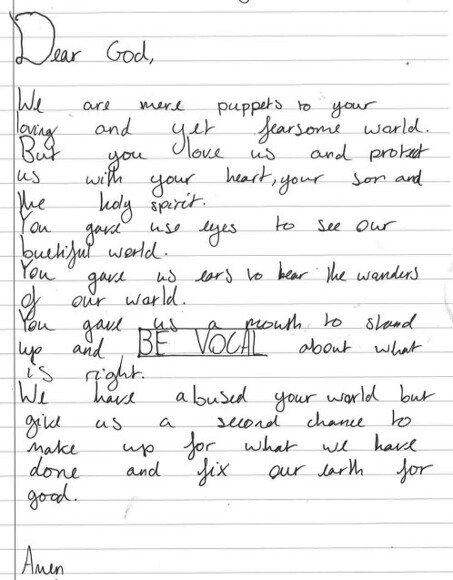 Dear God,
We are mere puppets to your
loving and yet fearsome world.
But you love us and protect
us with your heart, your son and
the holy spirit.
You gave use eyes to see our
buetiful world.
You gave us ears to hear the wanders
of our world.
You gave us a mouth to stand
up and BE VOCAL about what
is right.
We have abused your world but
give us a second chance to
make up for what we have
done and fix our earth for
good.
Amen